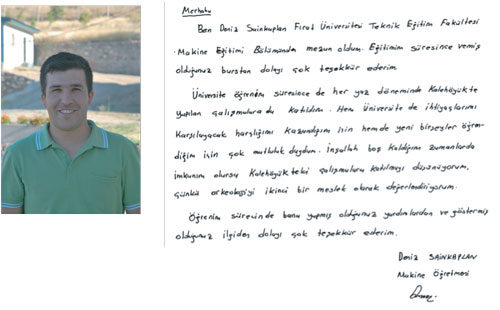 Merhaba
Ben Deniz Sainkaplan Fırat Üniversitesi Teknik Eğitim Fakültesi
Makine Eğitimi Bölümünden mezun oldum. Eğitimim süresince vermiş
olduğunuz burstan dolayı çok teşekkür ederim.
Üniversite öğrenim süresince de her yaz döneminde Kalehöyükte
yapılan çalışmalara da katıldım. Hem Üniversite de ihtiyaçlarımı
karşılayacak harçlığımı kazandığım için hemde yeni birşeyler öğren-
diğim için çok mutluluk duydum. İnşallah boş kaldığım zamanlarda
imkanım olursa Kalehöyükteki çalışmalara katılmayı düşünüyorum,
çünkü arkeolojiyi ikinci bir meslek olarak değerlendiriyorum.
Öğrenim sürecinde bana yapmış olduğunuz yardımlardan ve göstermiş
olduğunuz ilgiden dolayı çok teşekkür ederim.
Deniz SAİNKAPLAN
Makine Öğretmeni